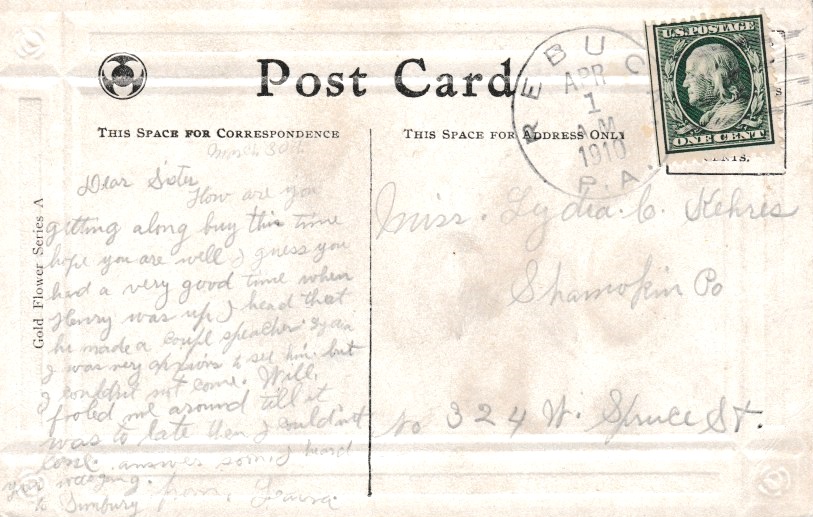 Post Card
THIS SPACE FOR CORRESPONDENCE
THIS SPACE FOR ADDRESS ONLY
U.S. POSTAGE
ONE CENT
CENTS.
REBUC
APR
1
AM
1910
P.A.
Gold Flower Series A
March 30th
Dear Sister
How are you
getting along buy this time
hope you are well I guess you
had a very good time when
Henry was up I head that
he made a coupl speacher Lydia
I was very anxious to see him but
I couldnt not come. Will,
fooled me around till it
was to late then I couldn't
come. answer soon I heard
you
to Sunbury from, Laura.
Miss. Lydia. C. Kehres
Shamokin Po
No 324 W. Spruce St.